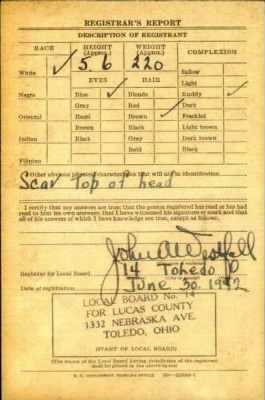 REGISTRAR'S REPORT
DESCRIPTION OF REGISTRANT
RACE HEIGHT (Approx.) WEIGHT (Approx.) COMPLEXION
White ✓ 5 6 220 Sallow
EYES HAIR Light
Negro Blue ✓ Blonde Ruddy ✓
Gray Red Dark
Oriental Hazel Brown ✓ Freckled
Brown Black Light brown
Indian Black Gray Dark brown
Bald Black
Filipino
Other obvious physical characteristics that will aid in identification
Scar top of head
I certify that my answers are true; that the person registered has read or has had
read to him his own answers; that I have witnessed his signature or mark and that
all of his answers of which I have knowledge are true, except as follows:
John A Westfall
Registrar for Local Board 14 Toledo O
Date of registration June 30. 1942
LOCAL BOARD No. 14
FOR LUCAS COUNTY
1332 NEBRASKA AVE.
TOLEDO, OHIO
(STAMP OF LOCAL BOARD)
(The stamp of the Local Board having jurisdiction of the registrant
shall be placed in the above space.)
U. S. GOVERNMENT PRINTING OFFICE